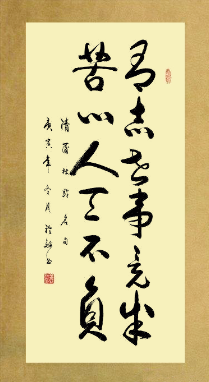 有志者事竟成
苦心人天不負
清蒲松龄名句
庚寅年冬月